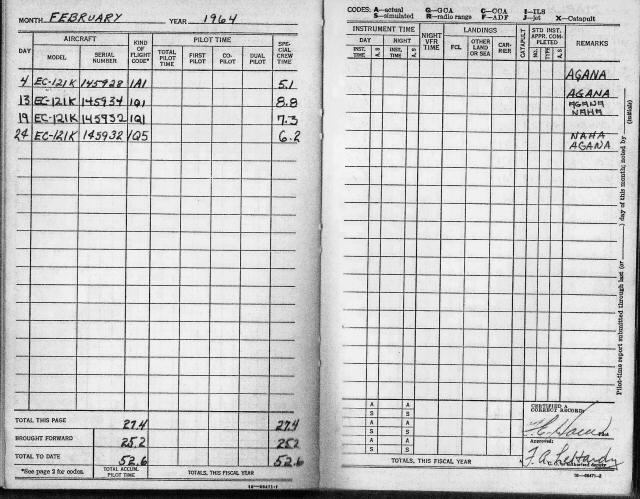 MONTH FEBRUARY YEAR 1964
DAY
AIRCRAFT
MODEL
SERIAL NUMBER
KIND OF FLIGHT CODE*
PILOT TIME
TOTAL PILOT TIME
FIRST PILOT
CO-PILOT
DUAL PILOT
SPECIAL CREW TIME
4 EC-121K 145928 1A1 5.1
13 EC-121K 145934 1Q1 8.8
19 EC-121K 145932 1Q1 7.3
24 EC-121K 145932 1Q5 6.2
TOTAL THIS PAGE 27.4 27.4
BROUGHT FORWARD 25.2 25.2
TOTAL TO DATE 52.6 52.6
*See page 2 for codes.
TOTAL ACCUM. PILOT TIME
TOTALS, THIS FISCAL YEAR
CODES: A—actual G—GCA C—CCA I—ILS
S—simulated R—radio range F—ADF J—jet X—Catapult
INSTRUMENT TIME
DAY
NIGHT
INST. TIME
A, S
INST. TIME
A, S
NIGHT VFR TIME
LANDINGS
FCL
OTHER LAND OR SEA
CARRIER
CATAPULT
STD INST. APPR. COMPLETED
NO.
TYPE
A, S
REMARKS
AGANA
AGANA
AGANA
NAHA
NAHA
AGANA
Pilot-time report submitted through last (or ) day of this month; noted by (initials)
A A
S S
A A
S S
A A
S S
TOTALS, THIS FISCAL YEAR
CERTIFIED A CORRECT RECORD:
Approved:
F. A. LeHardy